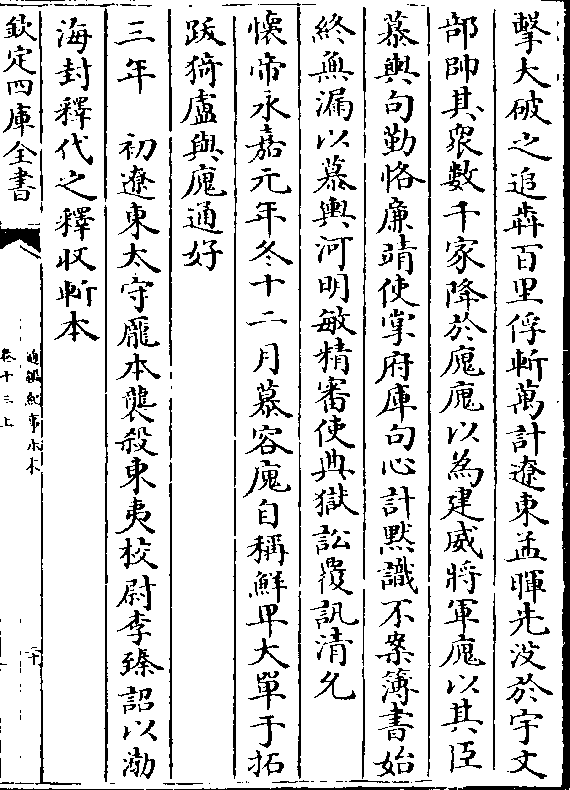 擊大破之追奔百里俘斬萬計遼東孟暉先没於宇文
部帥其衆數千家降於廆廆以為建威將軍廆以其臣
慕輿句勤恪廉靖使掌府庫句心計黙識不案簿書始
終無漏以慕輿河明敏精審使典獄訟覆訊清允
懷帝永嘉元年冬十二月慕容廆自稱鮮卑大單于拓
跋猗盧與廆通好
三年　初遼東太守龎本襲殺東夷校尉李臻詔以渤
海封釋代之釋収斬本
欽定四庫全書
通鑑紀事本末
卷十三上